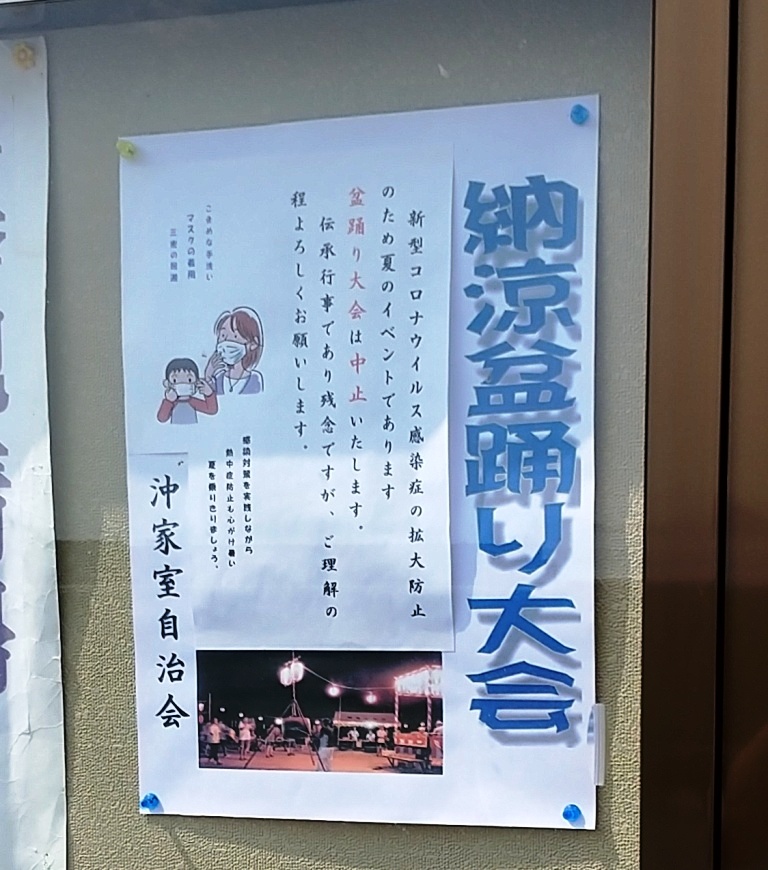 納涼盆踊り大会
新型コロナウイルス感染症の拡大防止
のため夏のイベントであります
盆踊り大会は中止いたします。
伝承行事であり残念ですが、ご理解の
程よろしくお願いします。
こまめな手洗い
マスクの着用
三密の回避
感染対策を実践しながら
熱中症防止も心がけ暑い
夏を乗り切りましょう。
沖家室自治会